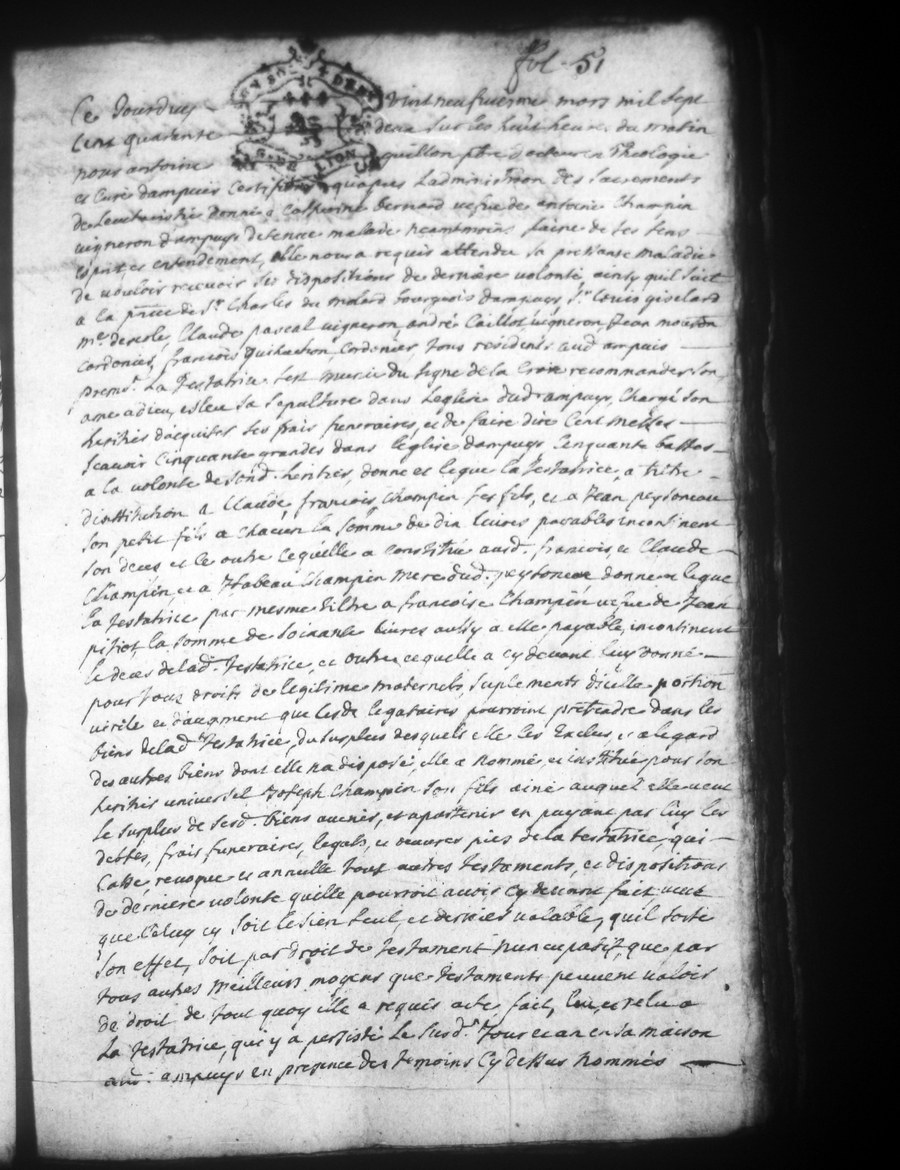 fol. 51
Ce Jourduy vint neufuieme mars mil sept
cent quarante deux sur les huit heures du matin
nous antoine guillon ptre docteur en Theologie
et Curé dampuis Certifions quapres Ladministron des sacrements
de Leucharistie donnée a Catherine Bernard vefue de antoine Champin
vigneron dampuys detenue malade neantmoins saine de ses sens
esprit, et entendement, Elle nous a requis attendu sa presante maladie
de vouloir recevoir ses dispositions de derniere volonté ainsy quil suit
a la pnce de Sr. Charles du malard bourgeois dampuys, Sr. Louis giselard
me. decole, Claude pascal vigneron, andré Caillot vigneron, Jean mouton
cordonier, francois Cordonier, tous residents aud ampuis
La Testatrice sest munie du signe de la Croix recommander son
ame a dieu, esleu sa sepulture dans Leglise dud ampuys, Chargé son
heritier dacquiter ses frais funeraires, et de faire dire Cent messes
scavoir Cinquante grandes dans leglise dampuys Cinquante basses
a la volonte de sond. heritier, donne et legue la Testatrice, a titre
dinstitution a Claude, francois, Champin ses fils, et a Jean peysoneau
son petit fils a chacun la somme de dix livres payables incontinent
son deces et ce outre cequelle a constitué aud. francois, et Claude
Champin, et a Isabeau Champin mere dud. peysoneau donne et legue
la Testatrice par mesme tiltre a francoise Champin vefue de Jean
la somme de soixante livres aussy a elle payable, incontinent
le deces delad. Testatrice, et outre cequelle a cy devant luy donné
pour tous droits de legitime maternels, suplements dicelle portion
virile et daugment que lesd legataires pourroint pretendre dans les
biens delad. Testatrice, du surplus desquels elle les Exclus, et alegard
des autres biens dont elle na disposé, elle a nommé, et institué pour son
heritier universel Joseph Champin son fils ainé auquel elle veut
le surplus de sesd. biens avenir, et apartenir en payant par luy les
debtes, frais funeraires, legats, et oeuvres pies de la testatrice, qui
Casse, revoque et annulle tout autres testaments, et dispositions
de derniere volonte quille pourroit avoir cy devant fait, veut
que Celuy cy soit le sien seul, et dernier valable, quil sorte
son effet, soit par droit de Testament nuncupatif, que par
tous autres meilleurs moyens que Testaments peuvent valoir
de droit de tout quoy elle a requis acte, fait, leu, et relu a
La Testatrice, qui y a persisté le susd. Jour et an en sa maison
aud. ampuys en presence des temoins Cy dessus nommés